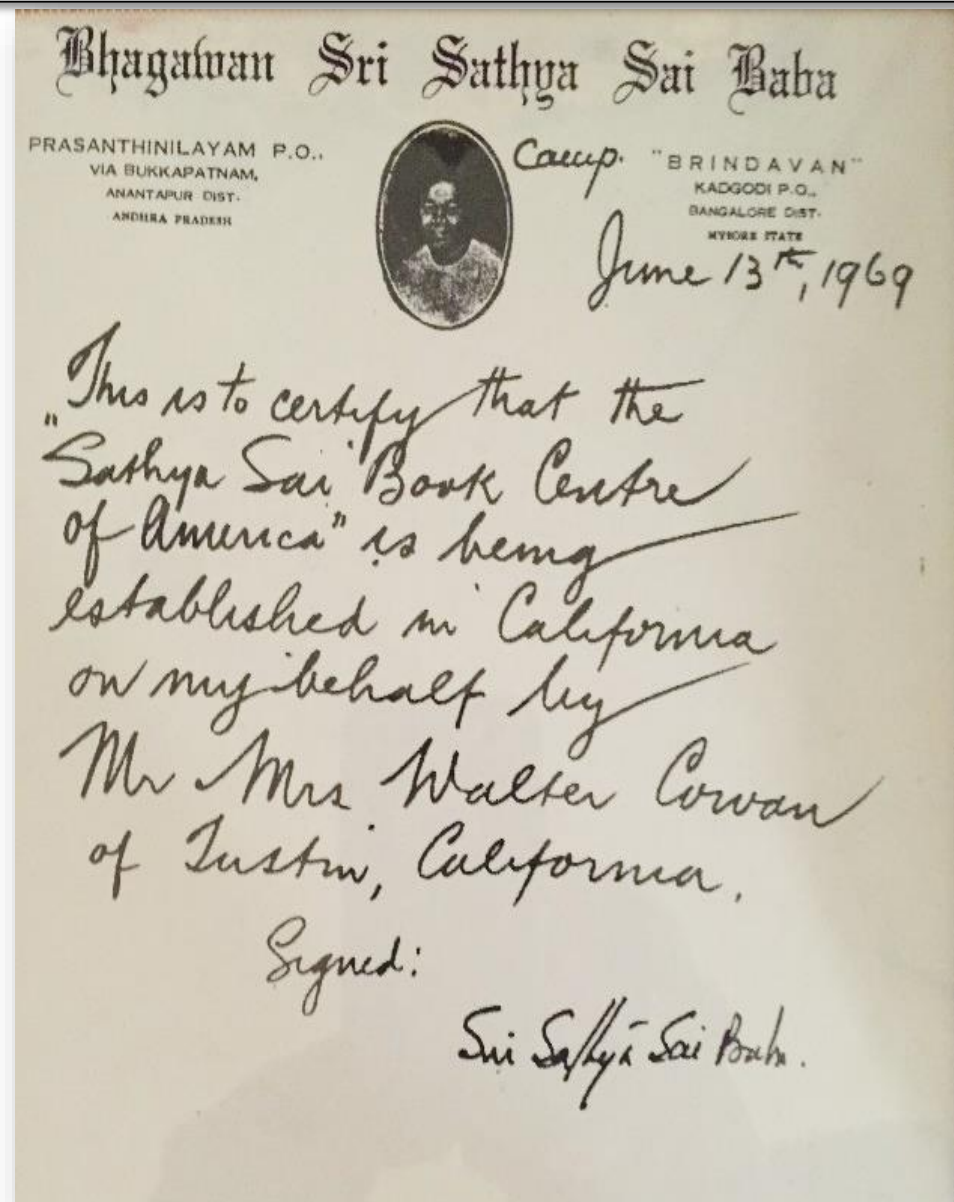 Bhagawan Sri Sathya Sai Baba
PRASANTHINILAYAM P.O.,
VIA BUKKAPATNAM,
ANANTAPUR DIST.
ANDHRA PRADESH
Camp. "BRINDAVAN"
KADGODI P.O.,
BANGALORE DIST.
MYSORE STATE
June 13th, 1969
This is to certify that the
"Sathya Sai Book Centre
of America" is being
established in California
on my behalf by
Mr Mrs Walter Cowan
of Tustin, California.
Signed:
Sri Sathya Sai Baba.